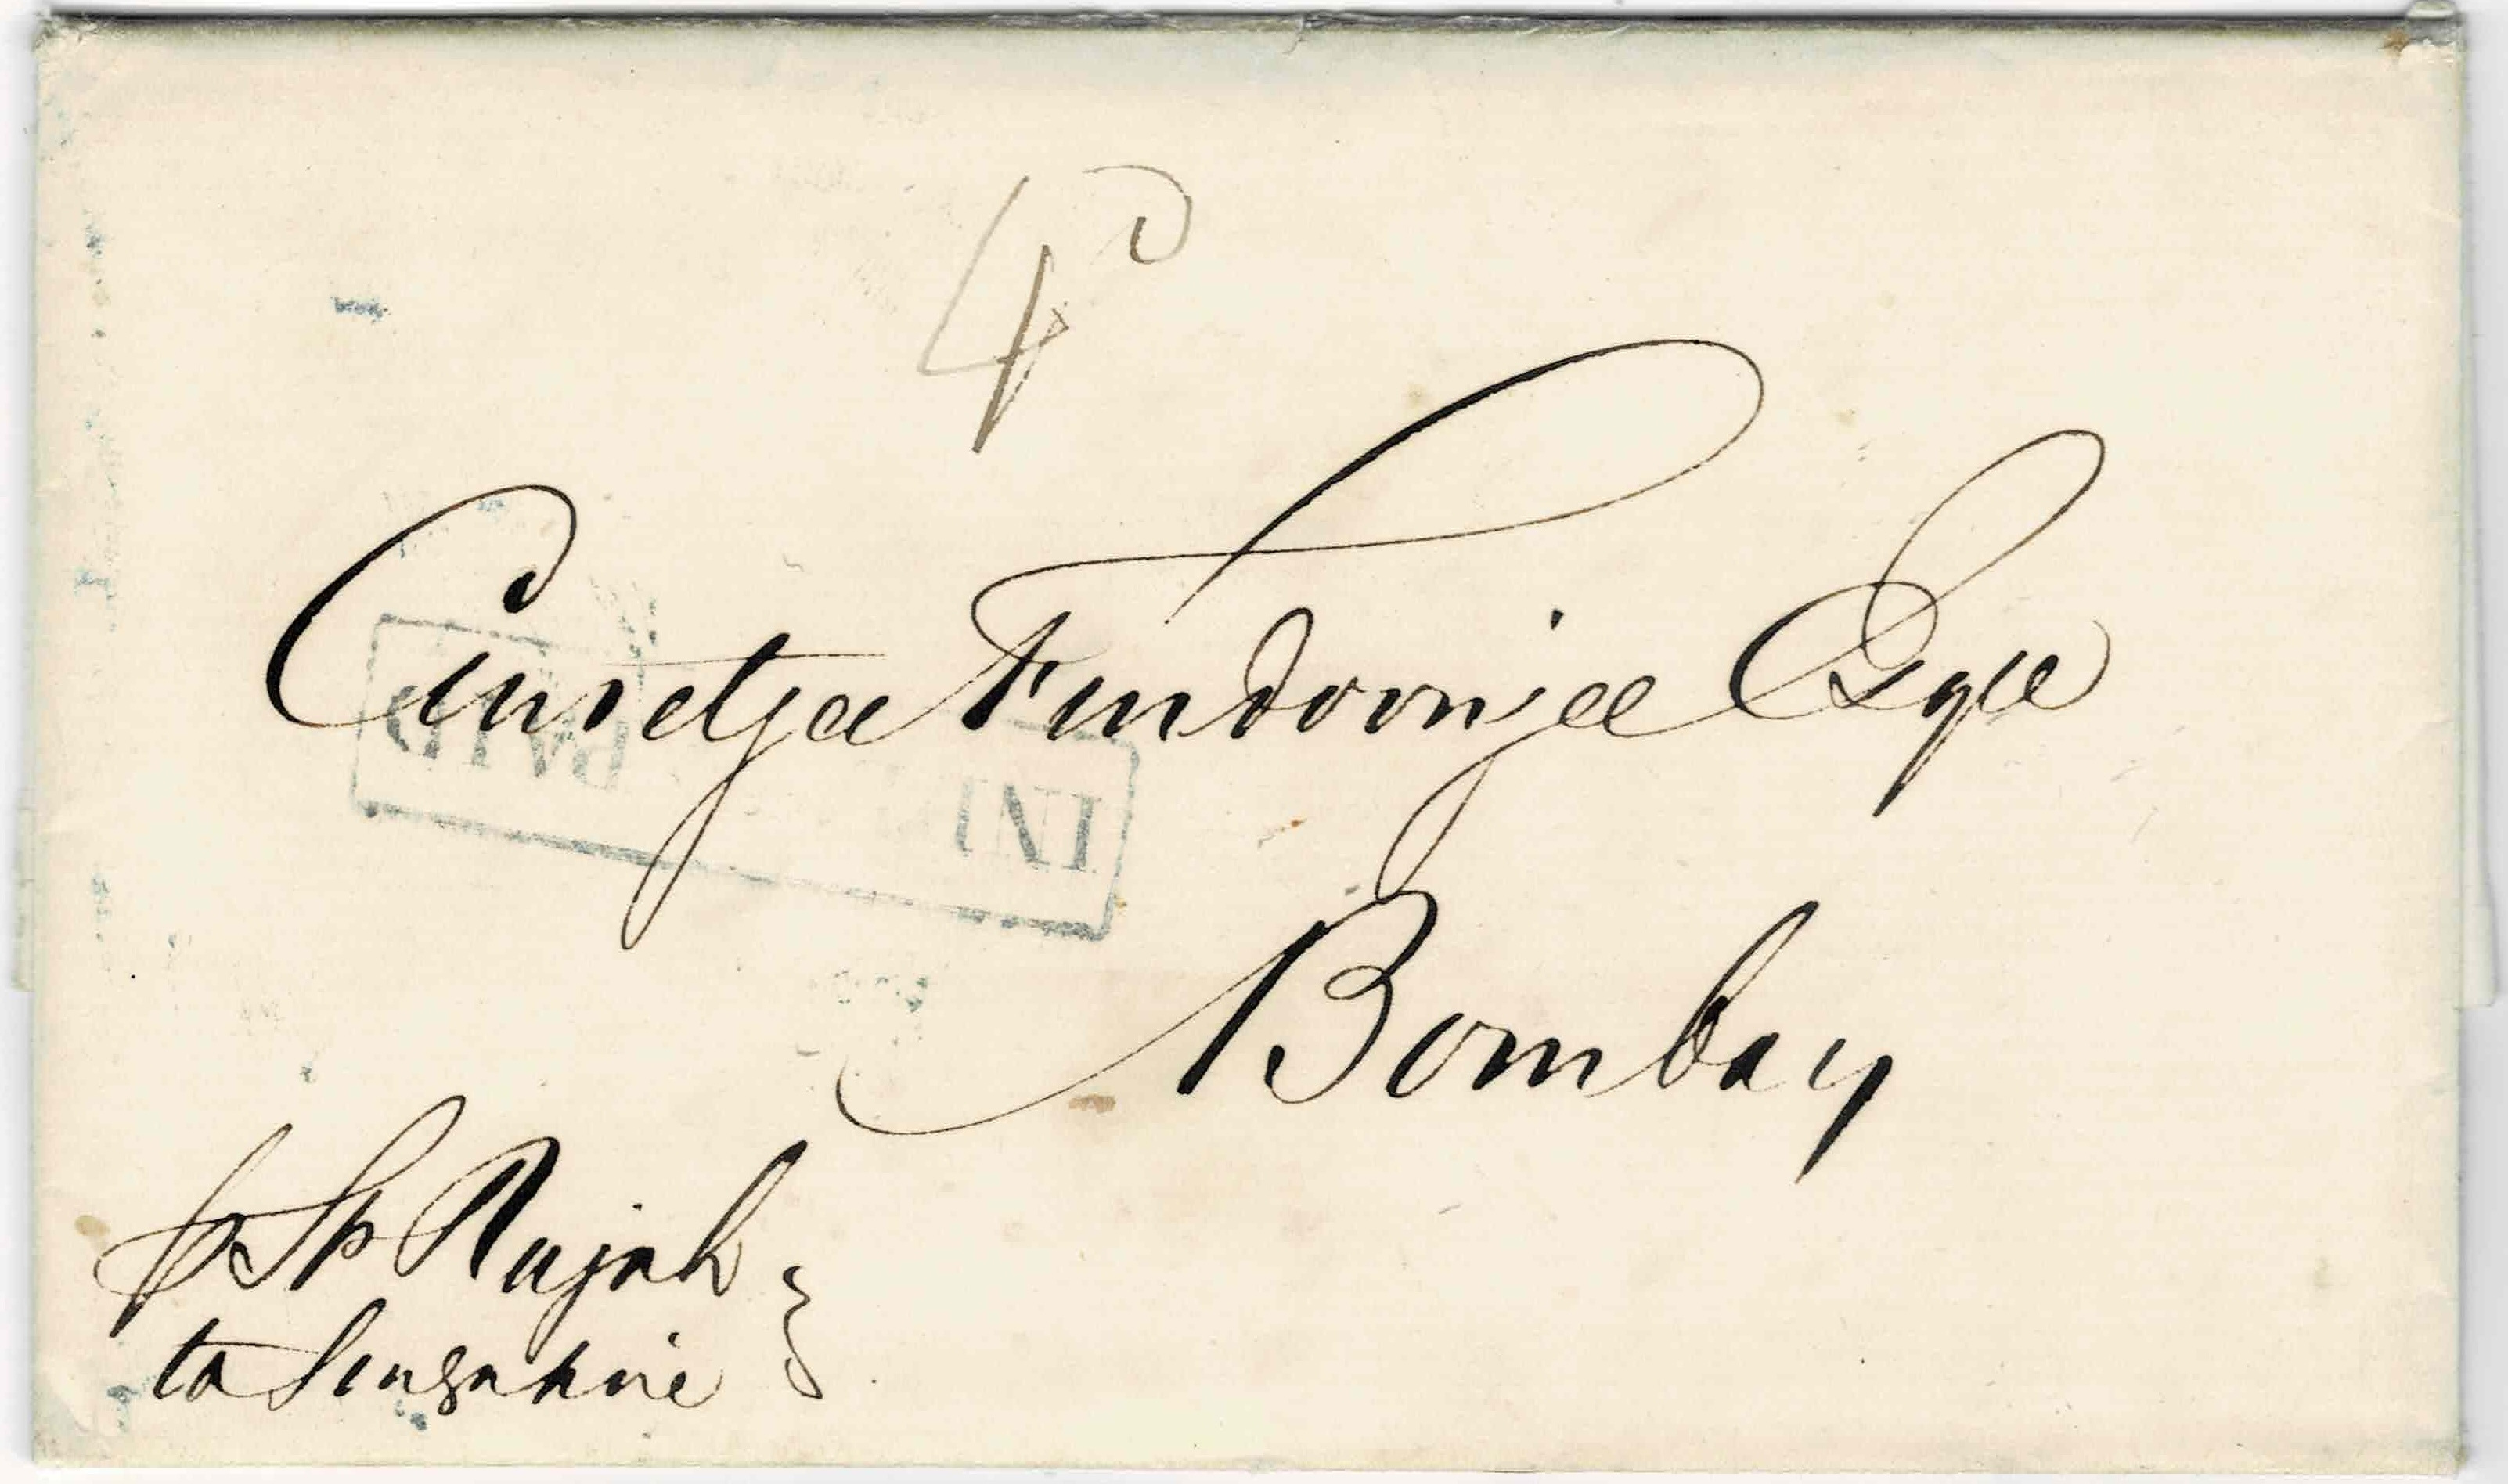 4d
Cursetjee Furdoonjee Esqre
PAID
IN
Bombay
p Sp Rajah
to Singapore